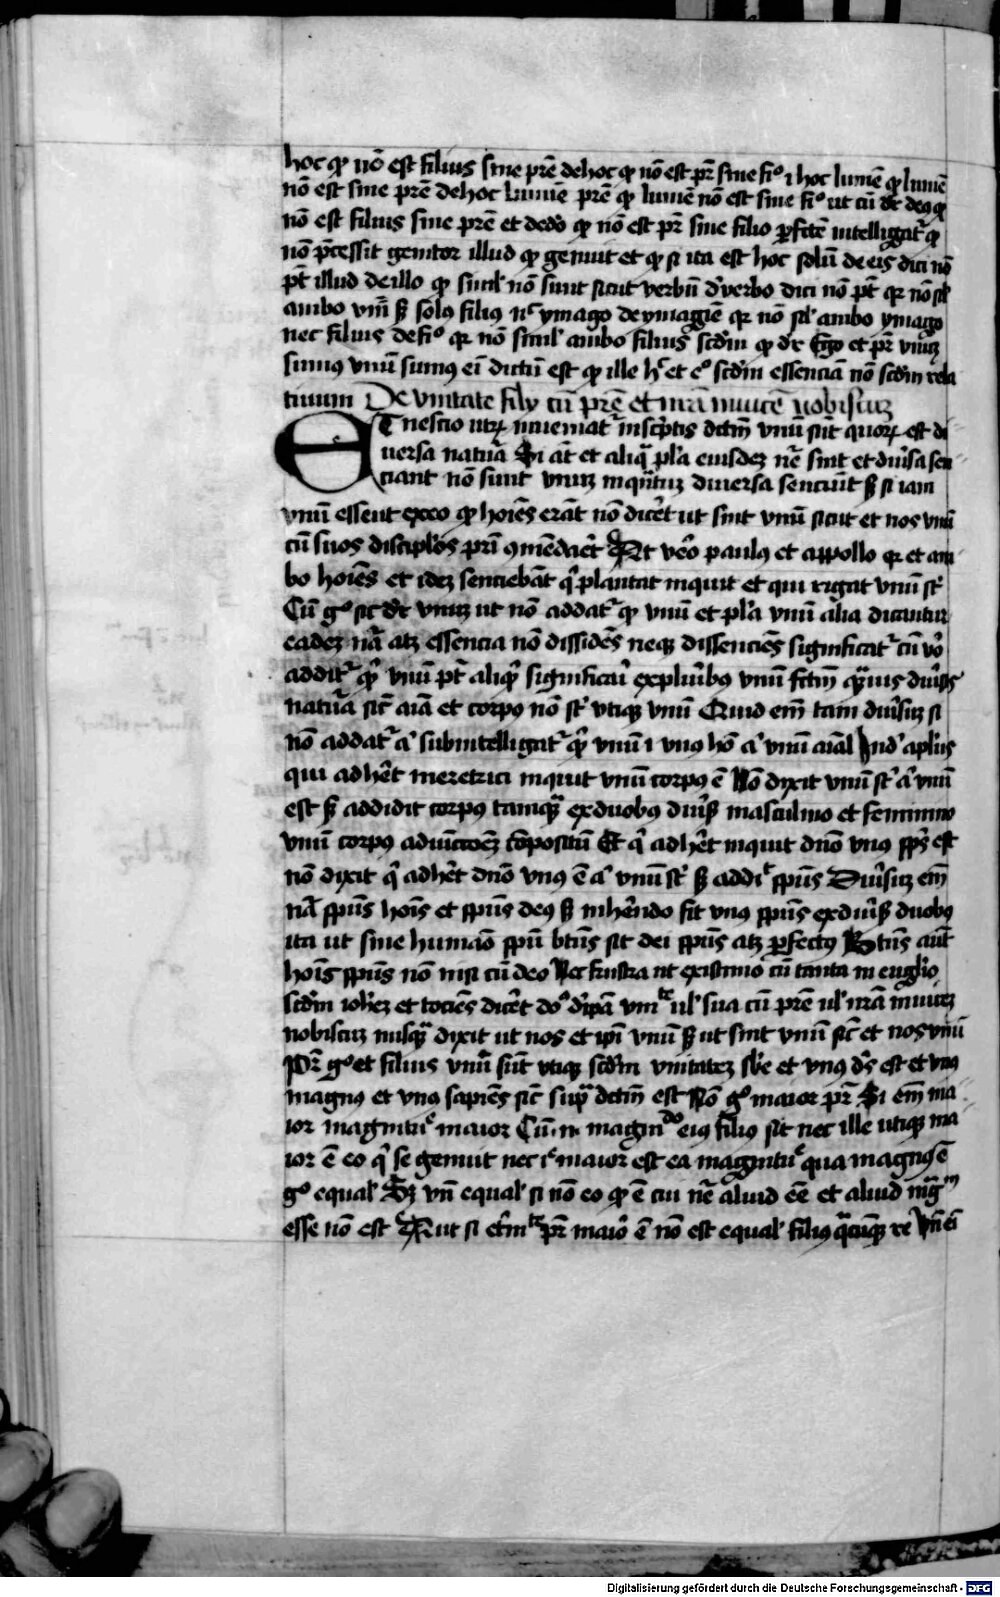 hoc qꝫ nō est filius sine prē de hoc qꝫ nō est pr̄ sine fi° ⁊ hoc lumē qꝫ lumē
nō est sine prē de hoc lumē prē qꝫ lumē nō est sine fi° ut cū dr̄ deus qꝫ
nō est filius sine prē et de deo qꝫ nō est pr̄ sine filio ꝑfcē intelligat᷑ qꝫ
nō p̄cessit genitor illud qꝫ genuit et qꝫ si ita est hoc solū de eis dici nō
pt̄ illud de illo qꝫ simul nō sunt sicut verbū d' verbo dici nō pt̄ qꝛ nō sil'
ambo vm̄ sꝫ solus filius nᶜ ymago de ymagīe qꝛ nō sil' ambo ymago
nec filius de fi° qꝛ nō simul ambo filius scd'm qꝫ dr̄ Ego et pr̄ vnum
sumus vnū sumus ei dictū est qꝫ ille hᶜ et e° scd'm essenciā nō scd'm rela
tiuum De vnitate filij cū prē et nr̄ā inuicē nobiscum
ET nescio utrꝫ inueniat᷑ in scpt̄is dctm̄ vnū sūt quoꝝ est di
uersa natura Si at̄ et aliqua pl'a eiusdem nē sint et diu'sa sen
ciant nō sunt vnum inqntum diuersa senciūt sꝫ si iam
vnū essent ex eo qꝫ hoīes erāt nō dic'et ut sint vnū sicut et nos vnū
cū suos discipl'os pri ꝯmēdaret At vero paulus et appollo qꝛ et am
bo hoīes et idem senciebāt q' plantat inquit et qui rigat vnū st̄
Cū g° sic dr̄ vnum ut nō addat᷑ qꝫ vnū et pl'a vnū alia dicuntur
eadem nā atꝫ essencia nō dissidēs neqꝫ dissenciēs significat᷑ cū vo
addit᷑ q' vnū pt̄ aliqꝫ significari ex plurib9 vnū fctm̄ quis diu'sis
natura sic aīa et corpus nō st̄ vtiqꝫ vnū Quid em̄ tam diu'sum si
nō addat᷑ a' subintelligat᷑ q' vnū ⁊ vnus ho a' vnū aīal Ind' apl'us
qui adheret meretrici inquit vnū corpus ē Nō dixit vnū st̄ a' vnū
est sꝫ addidit corpus tamqua ex duobus diu'sis masculino et feminino
vnū corpus adiuncōem cōpositū Et q' adheret inquit dn̄o vnus sp̄s est
nō dixit q' adheret dn̄o vnus ē a' vnū st̄ sꝫ addit sp̄us Diu'sum em̄
nā sp̄us hoīs et sp̄us deus sꝫ inherendo fit vnus sp̄us ex diu'sis duobus
ita ut sine humāo sp̄u bt̄us sit dei sp̄us atꝫ ꝑfectus Bt̄us aut
hoīs sp̄us nō nisi cū deo Nec frustra ut existimo cū tanta in euglio
scd'm ioh'em et tociēs dic'et do° d' ip̄a vnitate ul' sua cū prē ul' nr̄ā inuicem
nobiscum nusqua dixit ut nos et ip̄i vnū sꝫ ut sint vnū sic et nos vnū
Pr̄ g° et filius vnū sūt vtiqꝫ scd'm vnitatem sb'e et vnus d's est et vnus
magnus et vnus sapiēs sic supra dctm̄ est Nō g° maior pr̄ Si em̄ ma
ior magnitu' maior Cū magnitudo eius filius sit nec ille utiqꝫ ma
ior ē eo q' se genuit nec i' maior est ea magnitu' qua magnus ē
g° equal' Sed vn̄ equal' si nō eo qꝫ ē cui nē aliud eē et aliud mgm
esse nō est Aut si etnitate pr̄ maior ē nō est equal' filius qacūqꝫ re Vn̄ ei
Digitalisierung gefördert durch die Deutsche Forschungsgemeinschaft - DFG